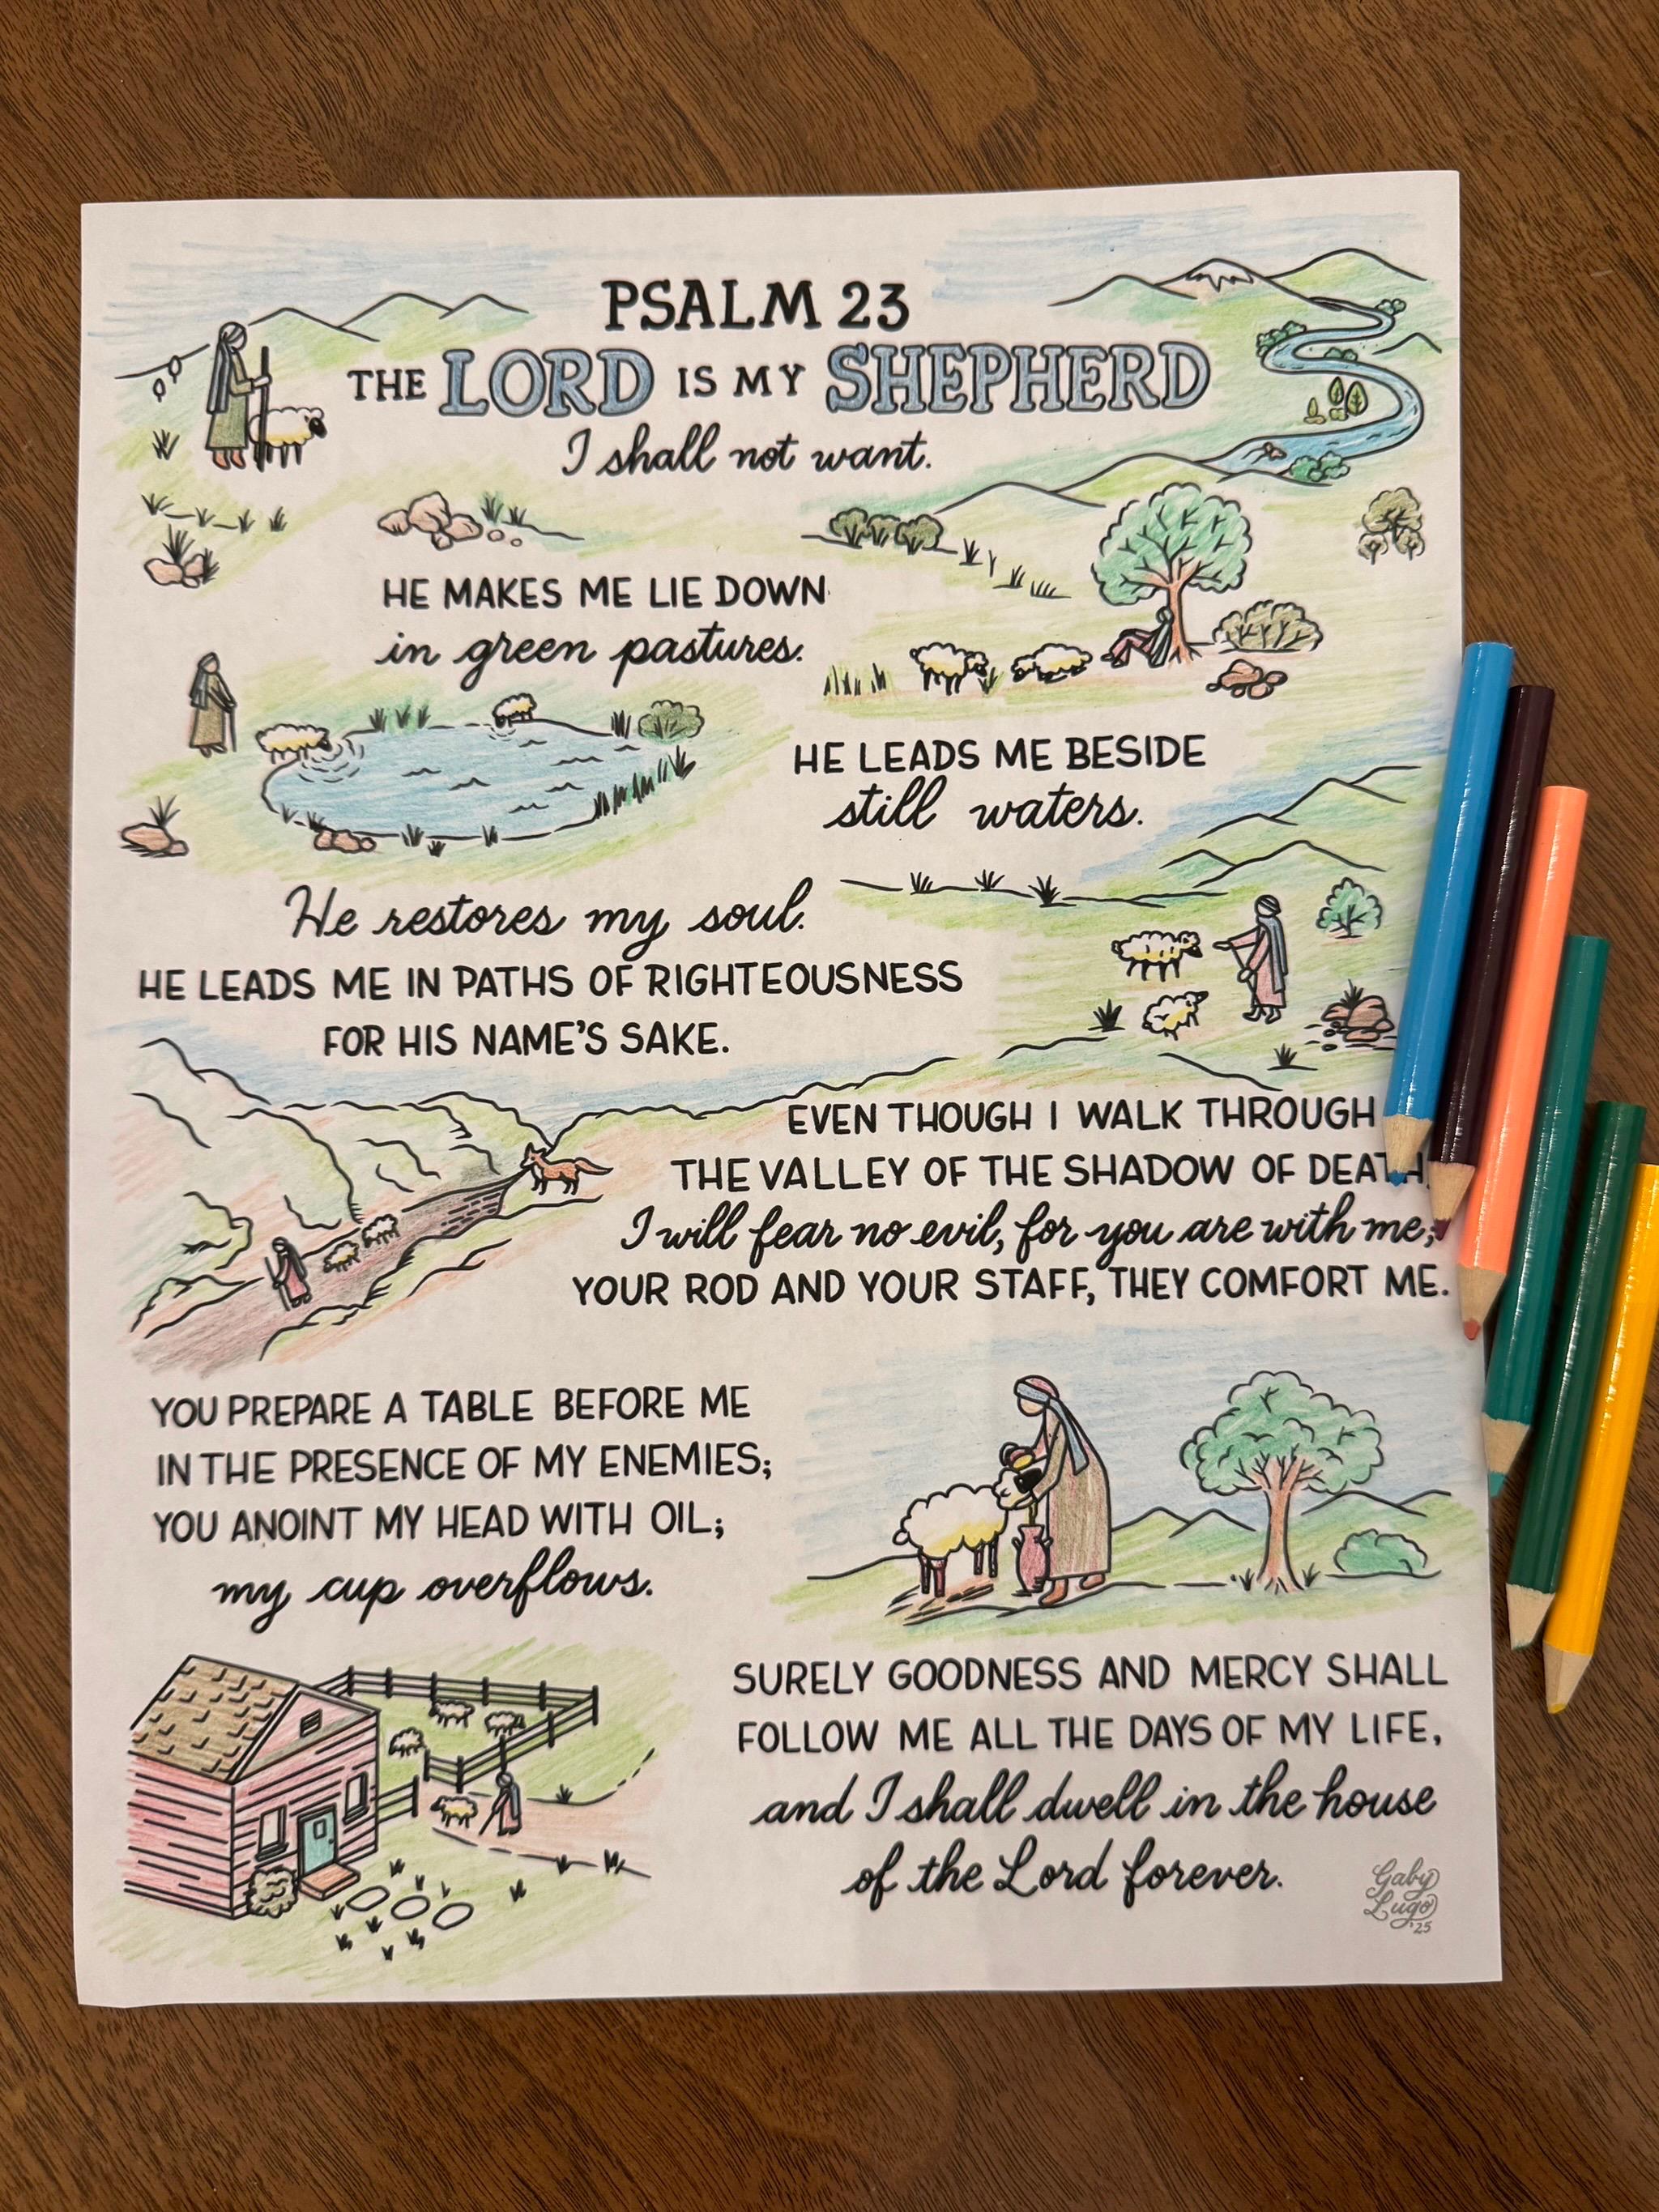 PSALM 23
THE LORD IS MY SHEPHERD
I shall not want.
HE MAKES ME LIE DOWN
in green pastures.
HE LEADS ME BESIDE
still waters.
He restores my soul.
HE LEADS ME IN PATHS OF RIGHTEOUSNESS
FOR HIS NAME'S SAKE.
EVEN THOUGH I WALK THROUGH
THE VALLEY OF THE SHADOW OF DEATH,
I will fear no evil, for you are with me;
YOUR ROD AND YOUR STAFF, THEY COMFORT ME.
YOU PREPARE A TABLE BEFORE ME
IN THE PRESENCE OF MY ENEMIES;
YOU ANOINT MY HEAD WITH OIL;
my cup overflows.
SURELY GOODNESS AND MERCY SHALL
FOLLOW ME ALL THE DAYS OF MY LIFE,
and I shall dwell in the house
of the Lord forever.
Gaby
Lugo
'25